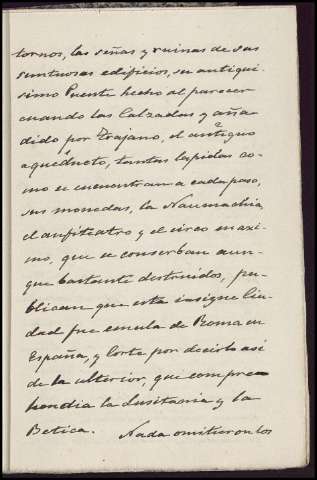 tornos, las señas y ruinas de sus
suntuosas edificios, su antiqui-
simo Puente hecho al parecer
cuando las Calzadas y aña-
dido por Trajano, el antiguo
aqueducto, tantas lapidas co-
mo se encuentran a cada paso,
sus monedas, la Naumachia
el anfiteatro y el circo maxi-
mo, que se conserban aun-
que bastante destruidos, pu-
blican que esta insigne Ciu-
dad fue emula de Roma en
España, y Corte por decirlo asi
de la ulterior, que compre-
hendia la Lusitania y la
Betica. Nada omitieron los